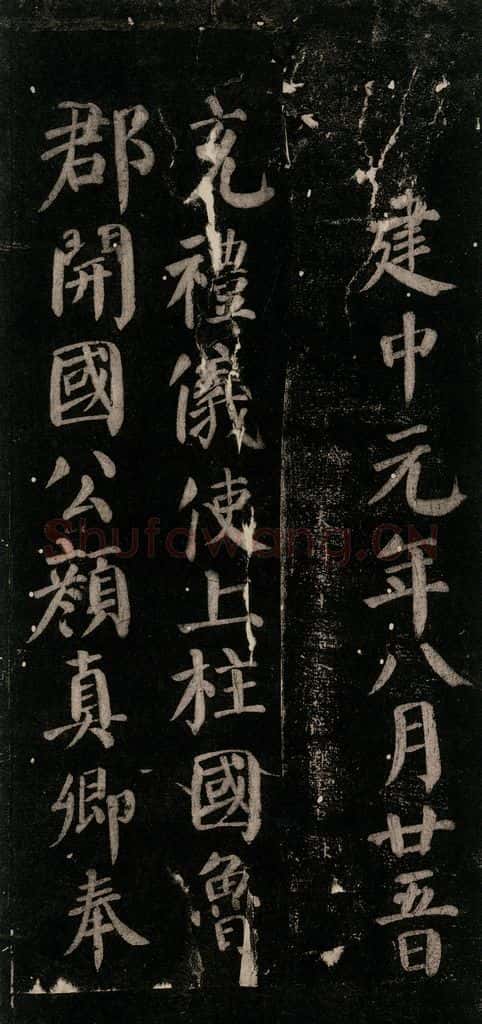 建中元年八月廿五日
充禮儀使上柱國魯
郡開國公顏真卿奉
Shufawang.CN